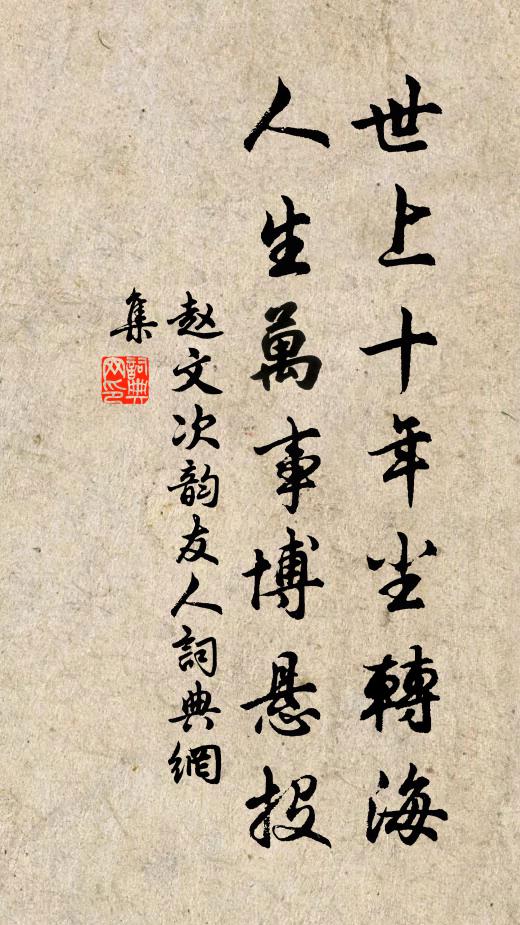 世上十年尘轉海
人生萬事博悬投
赵文次韵友人詞典網
集
詞典网印